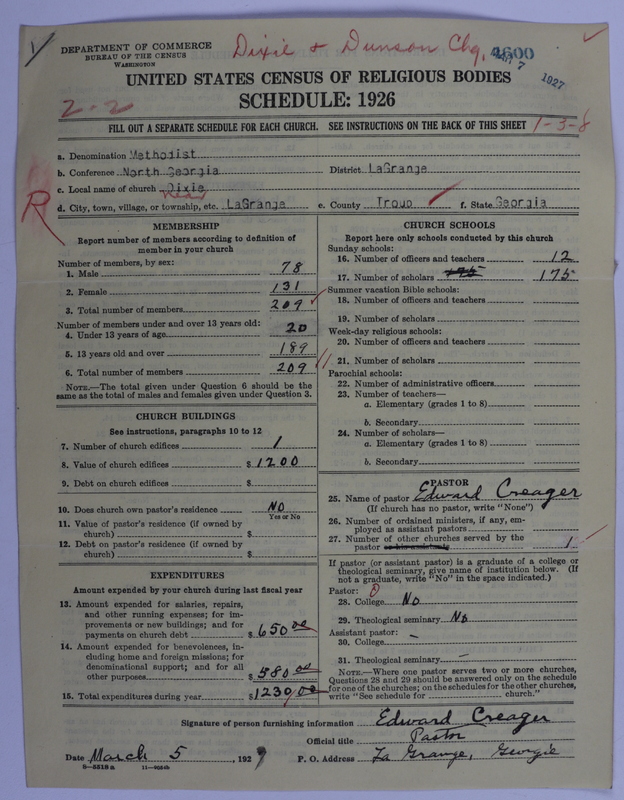 1/
DEPARTMENT OF COMMERCE
BUREAU OF THE CENSUS
WASHINGTON
Dixie & Dunson Chg.
4600
7 1927
UNITED STATES CENSUS OF RELIGIOUS BODIES
SCHEDULE: 1926
2-2
FILL OUT A SEPARATE SCHEDULE FOR EACH CHURCH. SEE INSTRUCTIONS ON THE BACK OF THIS SHEET
1-3-8
a. Denomination Methodist
b. Conference North Georgia District LaGrange
c. Local name of church Dixie
R
d. City, town, village, or township, etc. Near LaGrange e. County Troup f. State Georgia
MEMBERSHIP
Report number of members according to definition of
member in your church
Number of members, by sex:
1. Male 78
2. Female 131
3. Total number of members 209
Number of members under and over 13 years old:
4. Under 13 years of age 20
5. 13 years old and over 189
6. Total number of members 209
NOTE.—The total given under Question 6 should be
same as the total of males and females given under Question 3.
CHURCH BUILDINGS
See instructions, paragraphs 10 to 12
7. Number of church edifices 1
8. Value of church edifices $ 1200
9. Debt on church edifices $
10. Does church own pastor's residence No
Yes or No
11. Value of pastor's residence (if owned by
church) $
12. Debt on pastor's residence (if owned by
church) $
EXPENDITURES
Amount expended by your church during last fiscal year
13. Amount expended for salaries, repairs,
and other running expenses; for im-
provements or new buildings; and for
payments on church debt $ 650 00
14. Amount expended for benevolences, in-
cluding home and foreign missions; for
denominational support; and for all
other purposes $ 580 00
15. Total expenditures during year $ 1230 00
CHURCH SCHOOLS
Report here only schools conducted by this church
Sunday schools:
16. Number of officers and teachers 12
17. Number of scholars 195 175
Summer vacation Bible schools:
18. Number of officers and teachers
19. Number of scholars
Week-day religious schools:
20. Number of officers and teachers
21. Number of scholars
Parochial schools:
22. Number of administrative officers
23. Number of teachers—
a. Elementary (grades 1 to 8)
b. Secondary
24. Number of scholars—
a. Elementary (grades 1 to 8)
b. Secondary
PASTOR
25. Name of pastor Edward Creager
(If church has no pastor, write "None")
26. Number of ordained ministers, if any, em-
ployed as assistant pastors
27. Number of other churches served by the
pastor or his assistants 1
If pastor (or assistant pastor) is a graduate of a college or
theological seminary, give name of institution below. (If
not a graduate, write "No" in the space indicated.)
Pastor: 0
28. College No
29. Theological seminary No
Assistant pastor:
30. College —
31. Theological seminary —
NOTE.—Where one pastor serves two or more churches,
Questions 28 and 29 should be answered only on the schedule
for one of the churches; on the schedules for the other churches,
write "See schedule for church."
Signature of person furnishing information Edward Creager
Official title Pastor
Date March 5, 1927 P. O. Address La Grange, Georgia
8—5518a 11—9034b